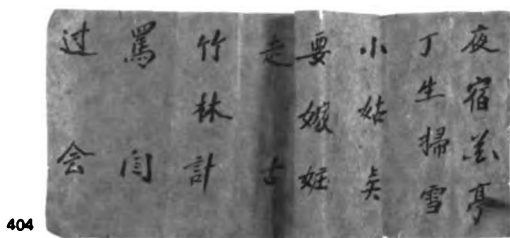 夜宿花亭
丁生掃雪
小姑
要嫁妝
走
竹林計
罵閆
过会
404